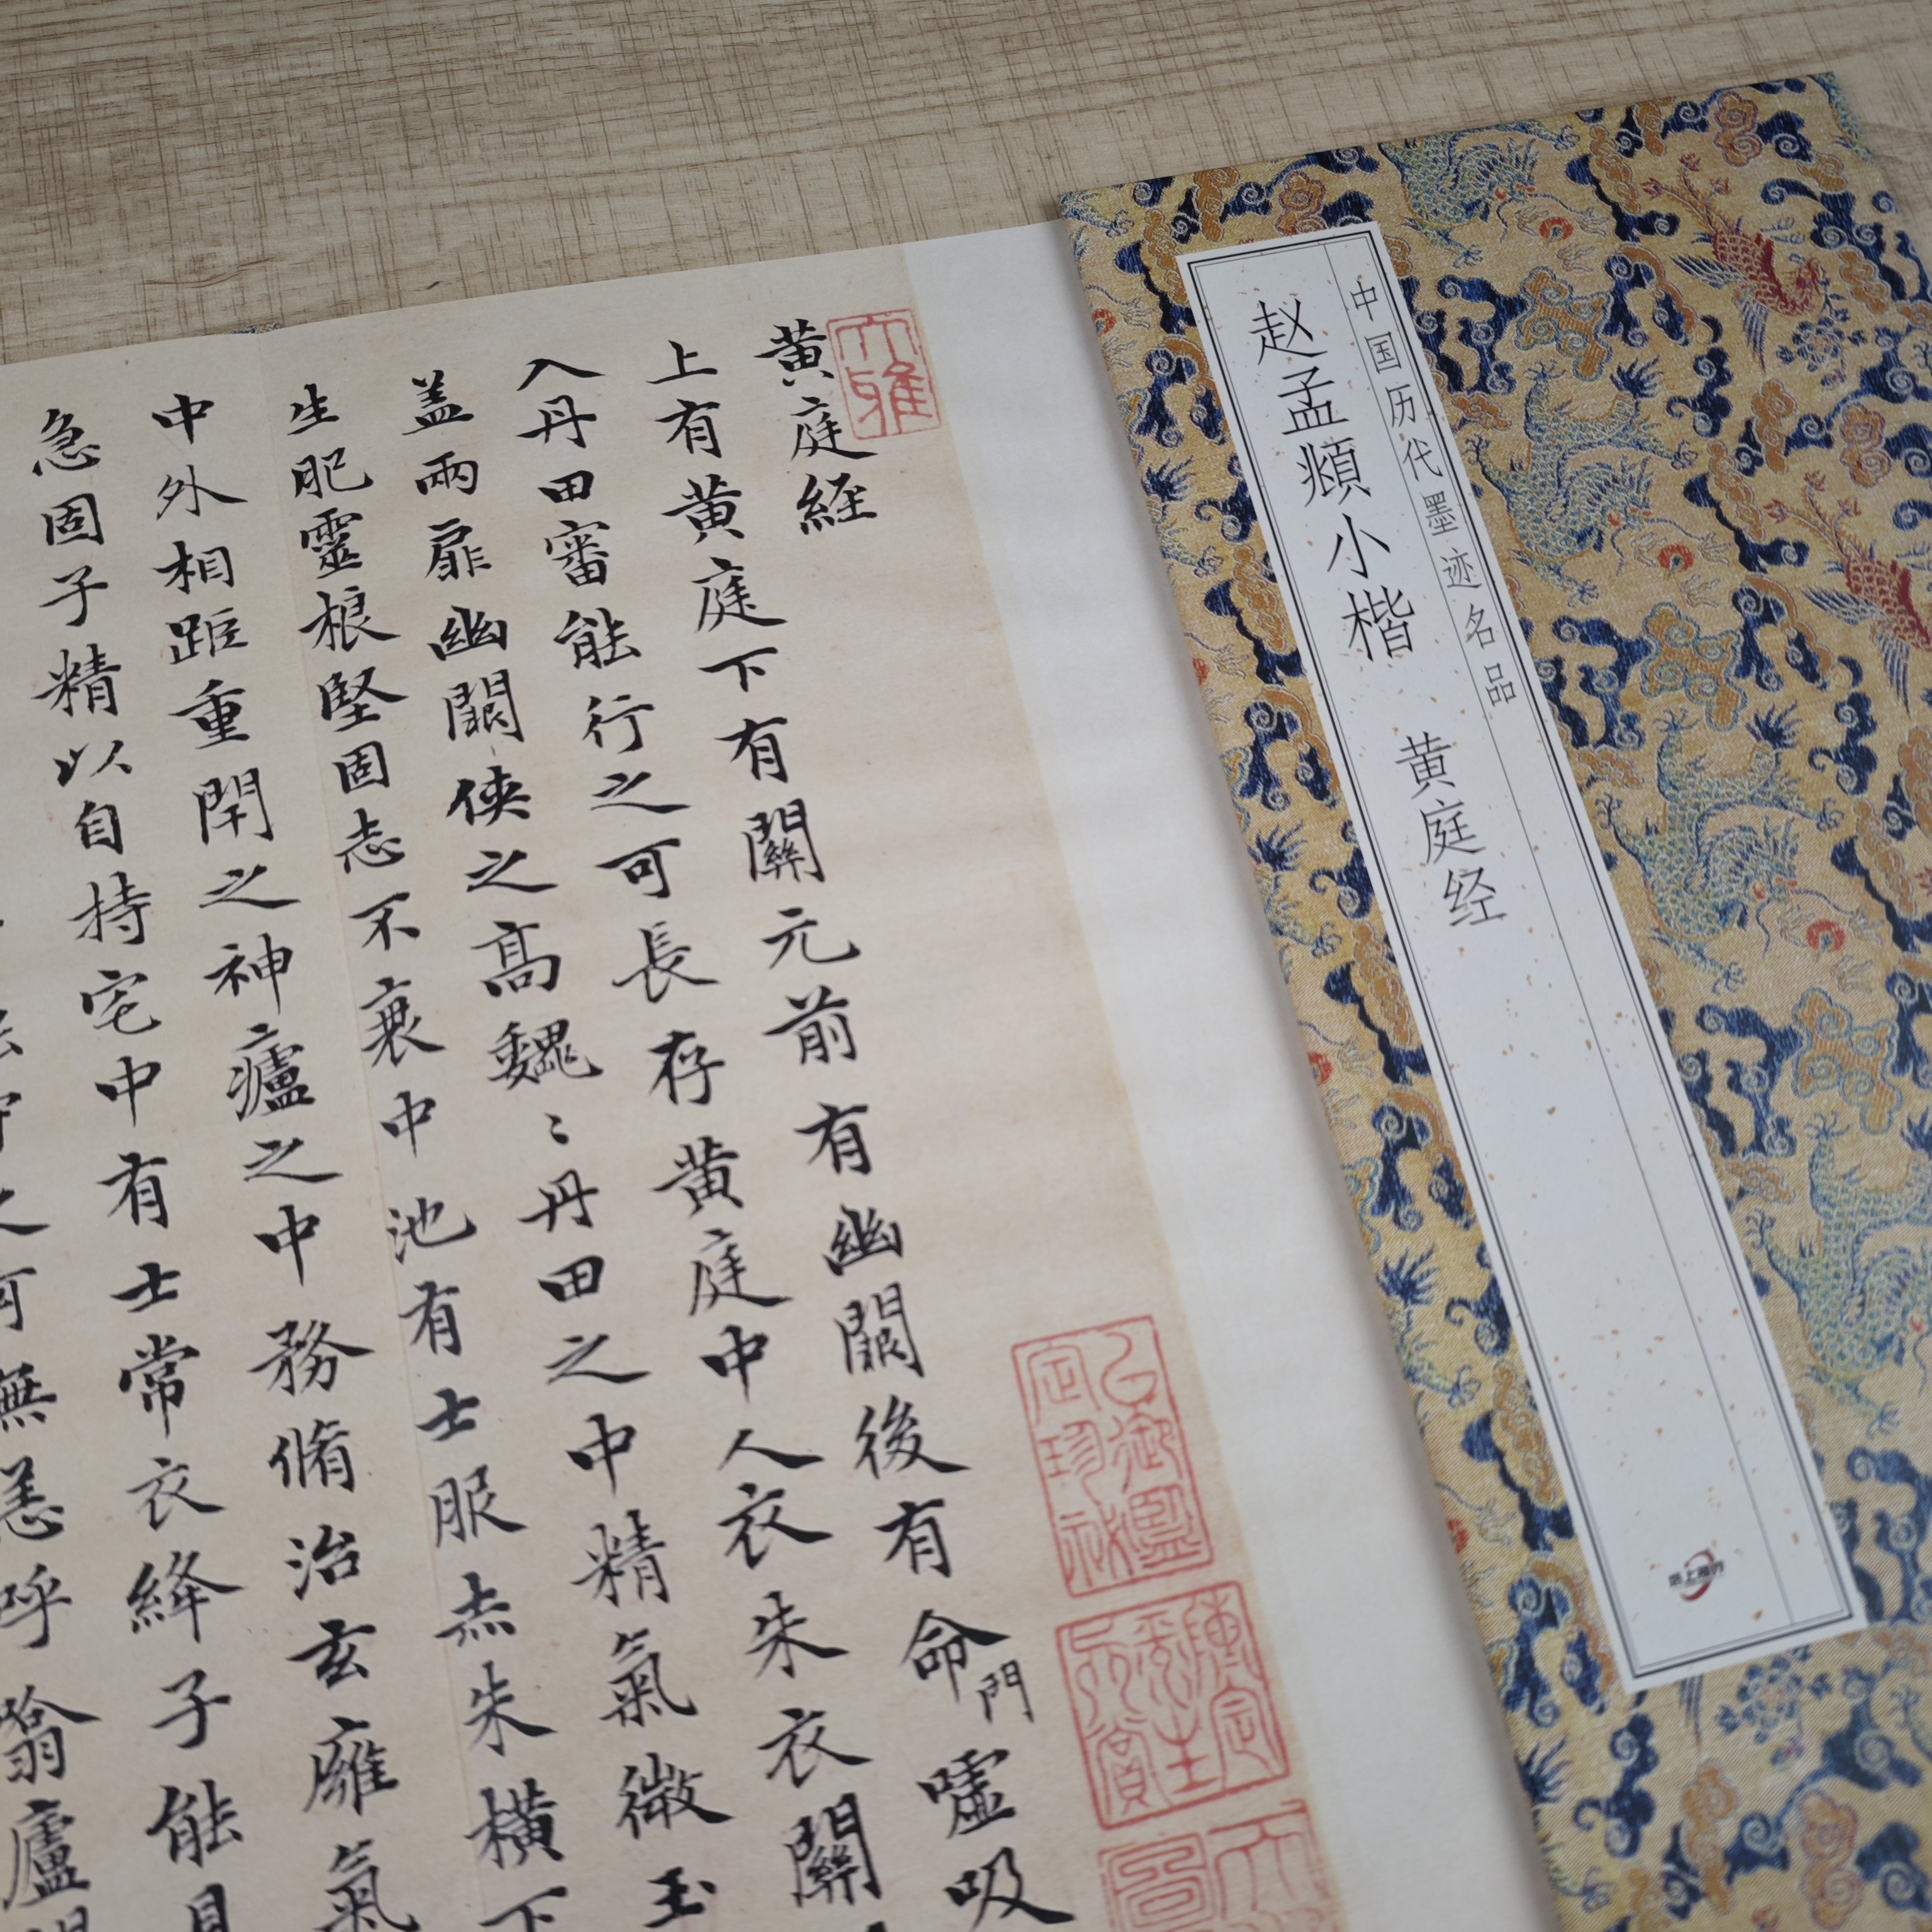 中国历代墨迹名品
赵孟頫小楷 黄庭经
大雅
黄庭経
上有黄庭下有關元前有幽闕後有命門噓吸
入丹田審能行之可長存黄庭中人衣朱衣關
盖兩扉幽闕侠之髙巍〻丹田之中精氣微玉
生肥靈根堅固志不衰中池有士服赤朱横下
中外相距重閇之神廬之中務脩治玄廱氣
急固子精以自持宅中有士常衣絳子能見
無恙呼翕廬間